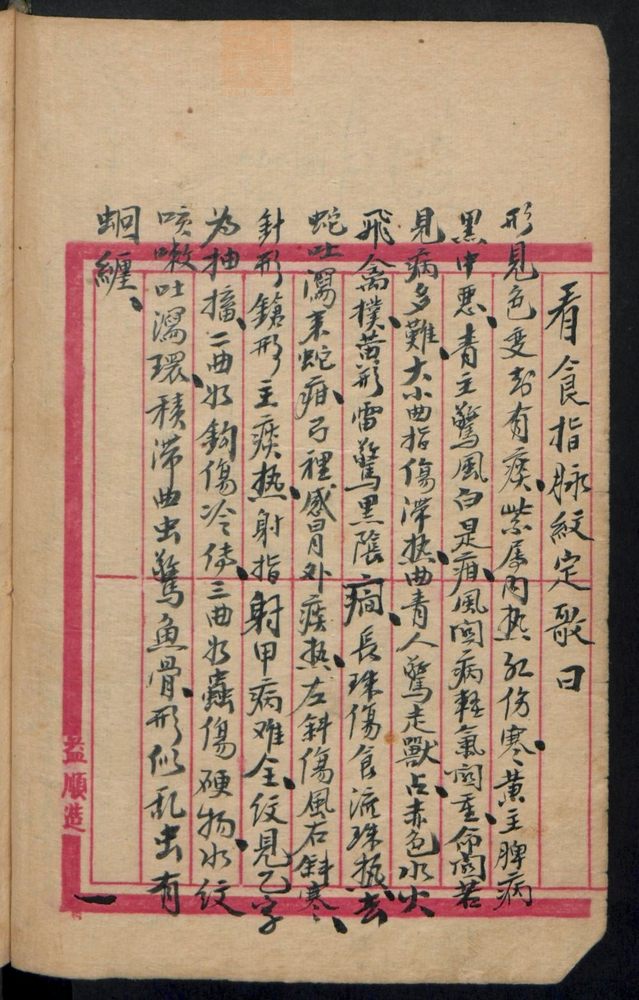 看食指脉紋定歌曰
形見色变却有痰、紫居内热紅伤寒、黄主脾病
黑中悪、青主驚風白是疳、風関病軽氣関重、命関若
見病多難、大小曲指傷滞热、曲青人驚走獸占、赤色水火
飛禽撲、黄形雷驚黒陰癇、長珠傷食流珠热、去
蛇吐瀉来蛇疳、弓裡感冒外痰热、左斜傷風右斜寒、
針形鎗形主痰热、射指射甲病难全、紋見乙字
为抽搐、二曲如鈎傷冷传、三曲如蟲傷硬物、水紋
咳嗽吐瀉環、積滞曲虫驚魚骨、形似乱虫有
蛔纏、
益順造
一